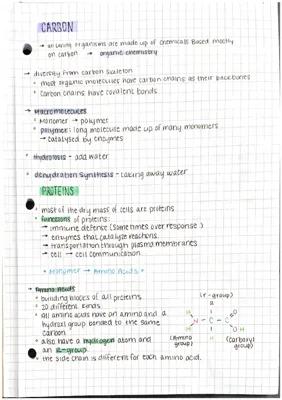 CARBON
→ all living organisms are made up of chemicals based mostly
on carbon → organic chemistry
→ diversity from carbon skeleton
• most organic molecules have carbon chains as their backbones
• carbon chains have covalent bonds
→ Macromolecules
• Monomer → polymer
• polymer: long molecule made up of many monomers
→ catalysed by enzymes
• Hydrolosis - add water
• dehydration synthesis - taking away water
PROTEINS
• most of the dry mass of cells are proteins
• functions of proteins:
→ immune defense (sometimes over response)
→ enzymes that catalyze reactions.
→ transportation through plasma membranes
→ cell → cell communication
* Monomer → Amino Acids *
→ Amino Acids
• building blocks of all proteins
• 20 different kinds
• all amino acids have an amino and a
hydroxl group bonded to the same
carbon.
• also have a hydrogen atom and
an R-group.
• the side chain is different for each amino acid.
(r-group)
R
H
N - C - C
O
OH
H
H
(Amino
group)
(carboxyl
group)